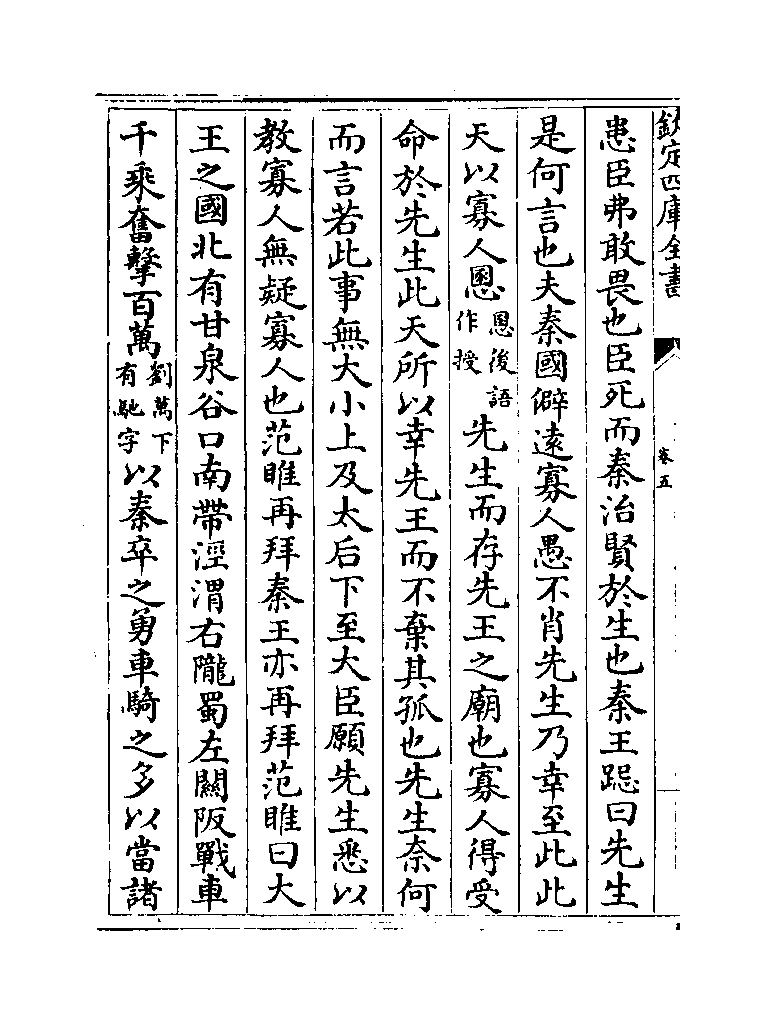 欽定四庫全書
卷五
患臣弗敢畏也臣死而秦治賢於生也秦王跽曰先生
是何言也夫秦國僻逺寡人愚不肖先生乃幸至此此
天以寡人慁慁後語作授先生而存先王之廟也寡人得受
命於先生此天所以幸先王而不棄其孤也先生奈何
而言若此事無大小上及太后下至大臣願先生悉以
教寡人無疑寡人也范雎再拜秦王亦再拜范雎曰大
王之國北有甘泉谷口南帶涇渭右隴蜀左關阪戰車
千乗奮擊百萬劉萬下有馳字以秦卒之勇車騎之多以當諸